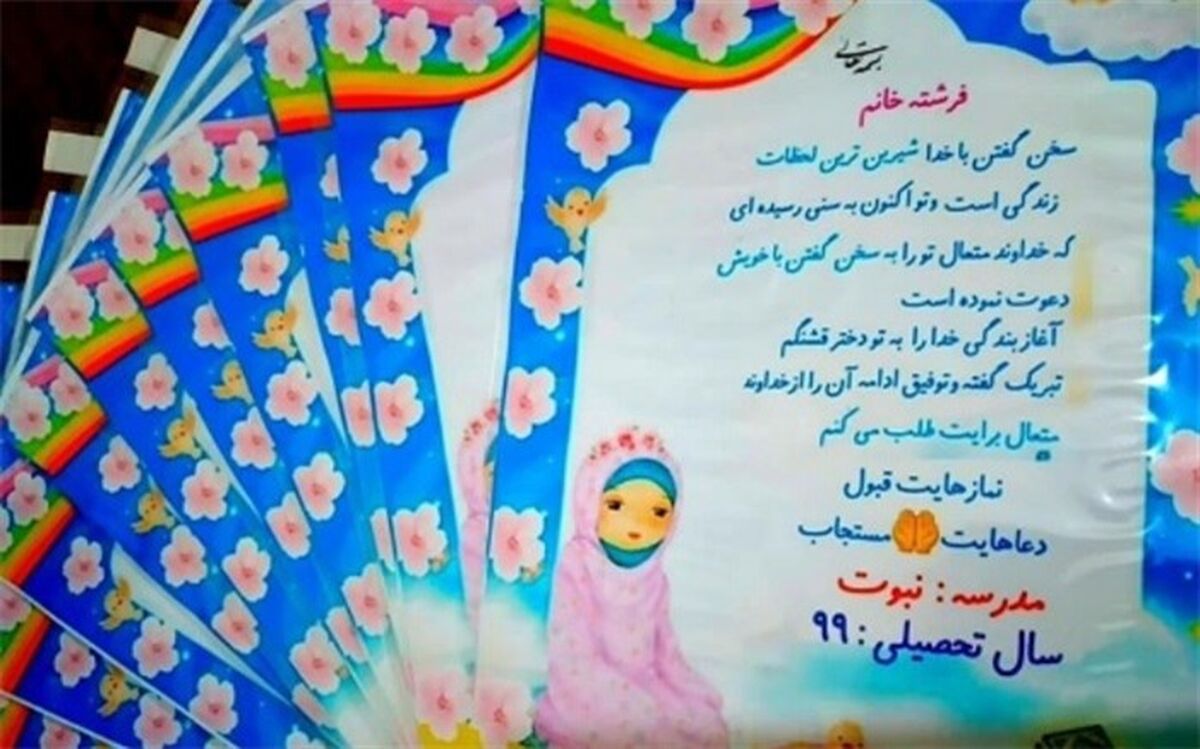 بسمه تعالی
فرشته خانم
سخن گفتن با خدا شیرین ترین لحظات
زندگی است و تو اکنون به سنی رسیده ای
که خداوند متعال تو را به سخن گفتن با خویش
دعوت نموده است
آغاز بندگی خدا را به تو دختر قشنگم
تبریک گفته و توفیق ادامه آن را از خداوند
متعال برایت طلب می کنم
نمازهایت قبول
دعاهایت مستجاب
مدرسه : نبوت
سال تحصیلی : ۹۹